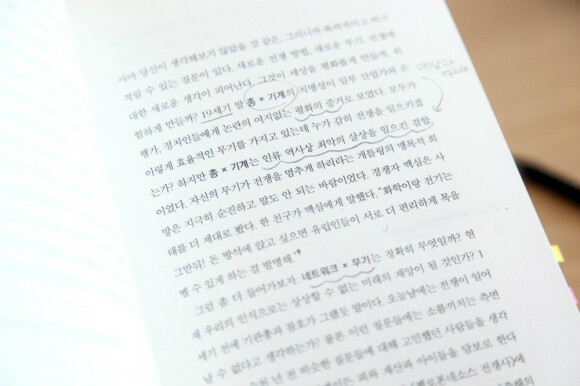 아마 당신이 생각해보지 않았을 것 같은, 그러나
적일 수 있는 질문이 있다. 새로운 전쟁 방법, 새로운 무기, 전쟁에
대한 새로운 생각이 피어난다. 그것이 세상을 평화롭게 만들까, 위
험하게 만들까? 19세기 말 총 × 기계의 치명성이 일부 산업가와 은
행가, 정치인들에게 논란의 여지없는 평화의 증거로 보였다. 모두가
이렇게 효율적인 무기를 가지고 있는데 누가 감히 전쟁을 일으키겠
는가? 하지만 총 × 기계는 인류 역사상 최악의 살상을 일으킨 결합
이었다. 자신의 무기가 전쟁을 멈추게 하리라는 개틀링의 맹목적 희
망은 지극히 순진하고 말도 안 되는 바람이었다. 경쟁자 맥심은 사
태를 더 제대로 봤다. 한 친구가 맥심에게 말했다. "화학이랑 전기는
그만둬! 돈 방석에 앉고 싶으면 유럽인들이 서로 더 편리하게 목을
벨 수 있게 하는 걸 발명해."
그럼 좀 더 들어가보자. 네트워크 × 무기는 정확히 무엇일까? 현
재 우리의 인식으로는 상상할 수 없는 미래의 재앙이 될 것인가? 1
세기 전에 기관총과 참호가 그랬듯 말이다. 오늘날에는 전쟁이 일어
날 수 없다고 생각하는가? 물론 이런 질문들에는 소름끼치는 측면
비슷한 질문들에 대해 고민했던 사람들을 생각
피와 재산과 아이들을 담보로 한다